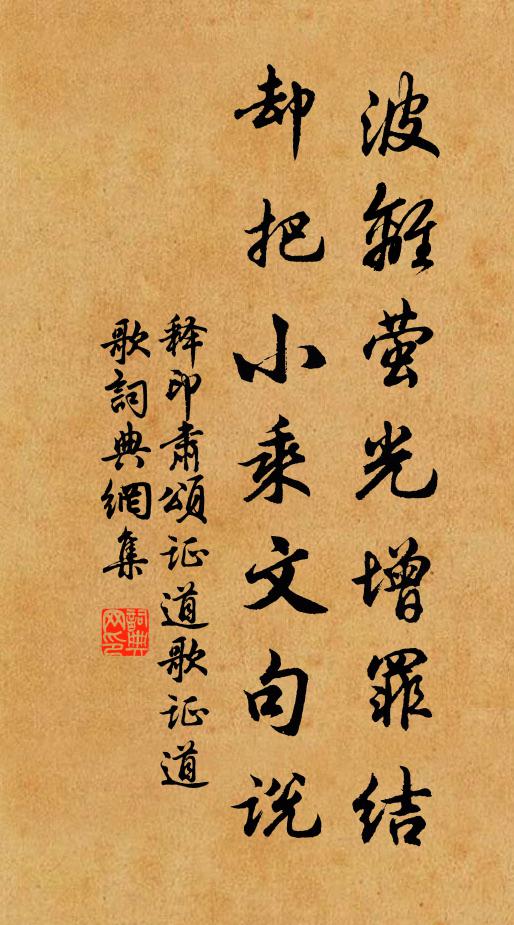 波離萤光增罪结
却把小乘文句说
释印肃頌证道歌证道
歌詞典網集
詞典
网印